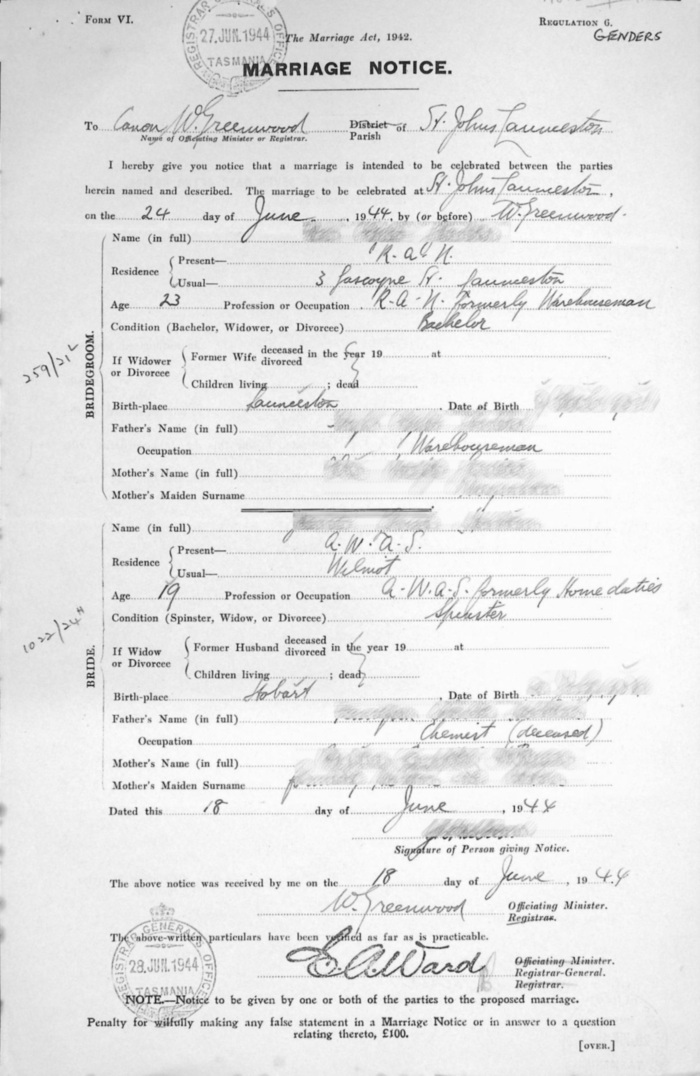 FORM VI.
REGULATION 6.
GENDERS
REGISTRAR GENERAL'S OFFICE
27 JUN 1944
TASMANIA
The Marriage Act, 1942.
MARRIAGE NOTICE.
To Canon W. Greenwood District of St. Johns Launceston
Name of Officiating Minister or Registrar. Parish
I hereby give you notice that a marriage is intended to be celebrated between the parties
herein named and described. The marriage to be celebrated at St. Johns Launceston,
on the 24 day of June, 1944, by (or before) W. Greenwood.
BRIDEGROOM.
259/21
Name (in full)
Residence
Present— R.A.N.
Usual— 3 Gascoyne St. Launceston
Age 23 Profession or Occupation R.A.N. formerly Warehouseman
Condition (Bachelor, Widower, or Divorcee) Bachelor
If Widower or Divorcee
Former Wife deceased divorced in the year 19 at
Children living ; dead
Birth-place Launceston. Date of Birth
Father's Name (in full)
Occupation Warehouseman
Mother's Name (in full)
Mother's Maiden Surname
BRIDE.
1022/24
Name (in full)
Residence
Present— A.W.A.S.
Usual— Wilmot
Age 19 Profession or Occupation A.W.A.S. formerly Home duties
Condition (Spinster, Widow, or Divorcee) Spinster
If Widow or Divorcee
Former Husband deceased divorced in the year 19 at
Children living ; dead
Birth-place Hobart, Date of Birth
Father's Name (in full)
Occupation Chemist (deceased)
Mother's Name (in full)
Mother's Maiden Surname
Dated this 18 day of June, 1944
Signature of Person giving Notice.
The above notice was received by me on the 18 day of June, 1944
W. Greenwood Officiating Minister.
Registrar.
The above-written particulars have been verified as far as is practicable.
REGISTRAR GENERAL'S OFFICE
28 JUN 1944
TASMANIA
E. A. Ward
Officiating Minister.
Registrar-General.
Registrar.
NOTE.—Notice to be given by one or both of the parties to the proposed marriage.
Penalty for wilfully making any false statement in a Marriage Notice or in answer to a question
relating thereto, £100.
[OVER.]